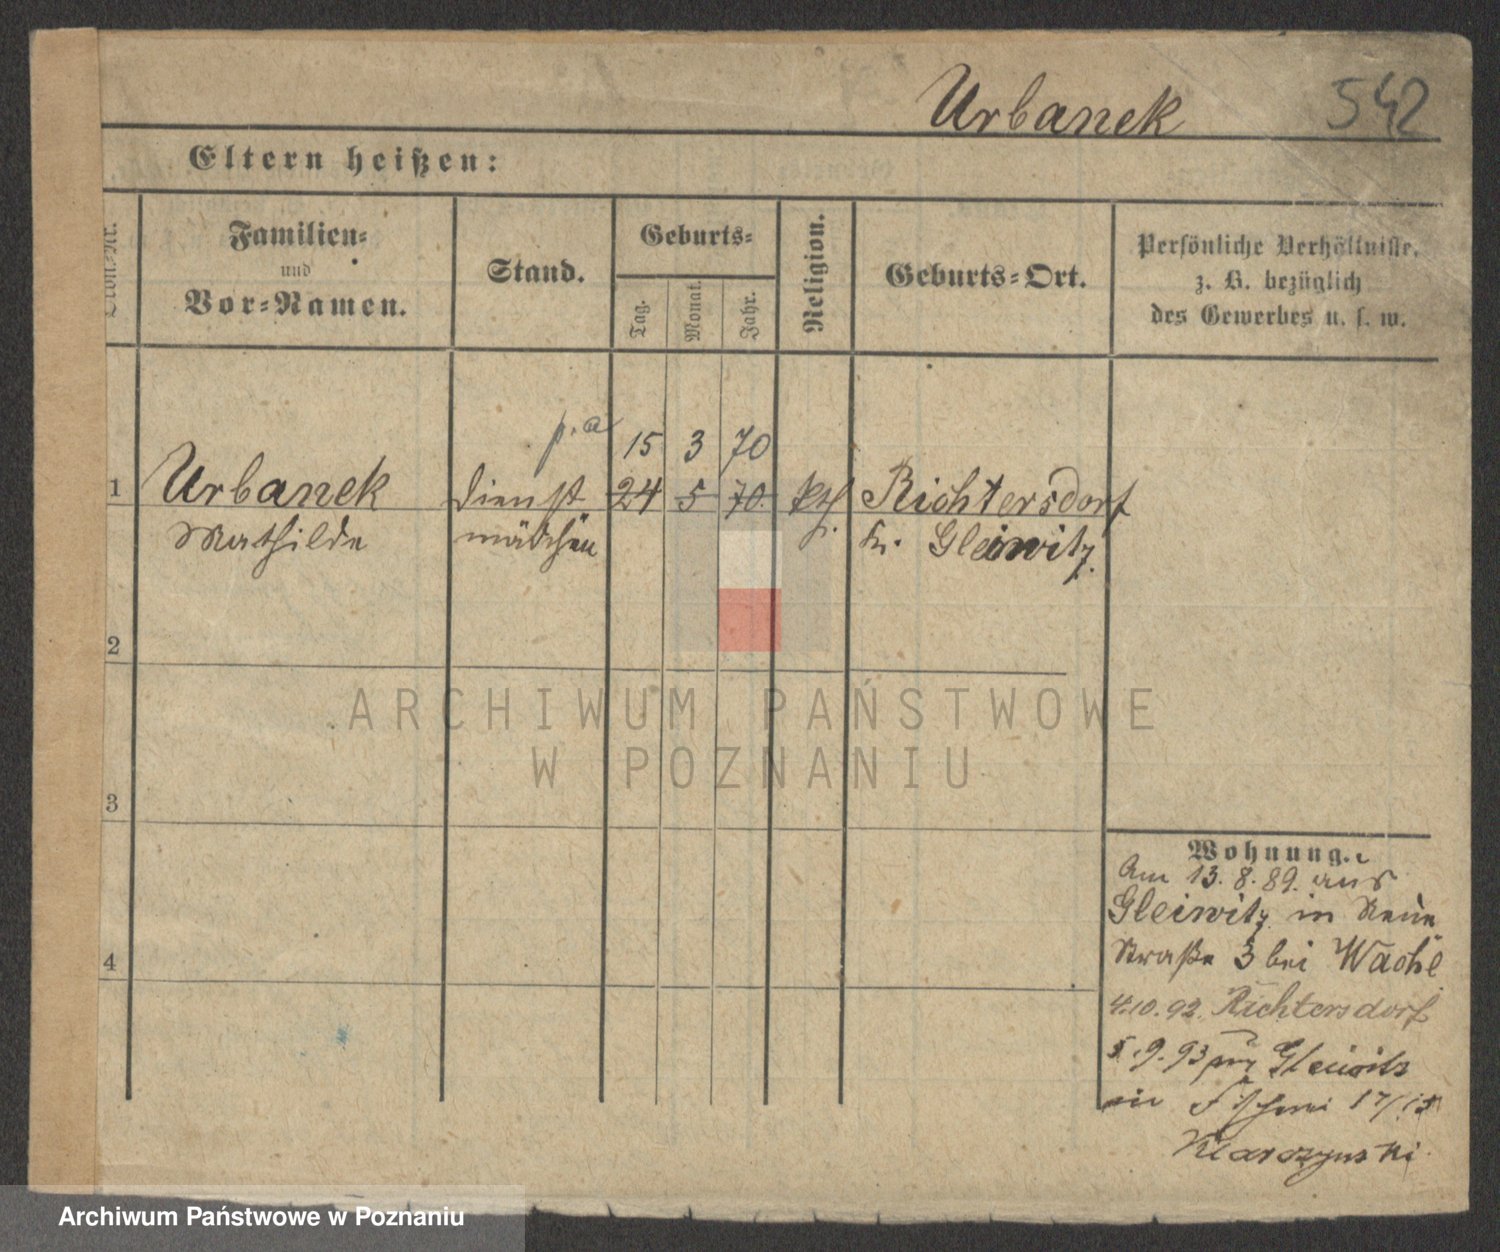 Urbanek 542
Eltern heißen:
Familien=
und
Vor=Namen.
Stand.
Geburts=
Tag.
Monat.
Jahr.
Religion.
Geburts=Ort.
Persönliche Verhältnisse,
z. B. bezüglich
des Gewerbes u. s. w.
p. a 15 3 70
1 Urbanek Dienst 24 5 70. kth. Richtersdorf
Mathilde mädchen Kr. Gleiwitz.
2
3
4
Wohnung.
Am 13.8.89. aus
Gleiwitz in Neue
Straße 3 bei Wache
4.10.92. Richtersdorf
5.9.93 Gleiwitz
in Fischerei 17/18
ARCHIWUM PAŃSTWOWE
W POZNANIU
Archiwum Państwowe w Poznaniu